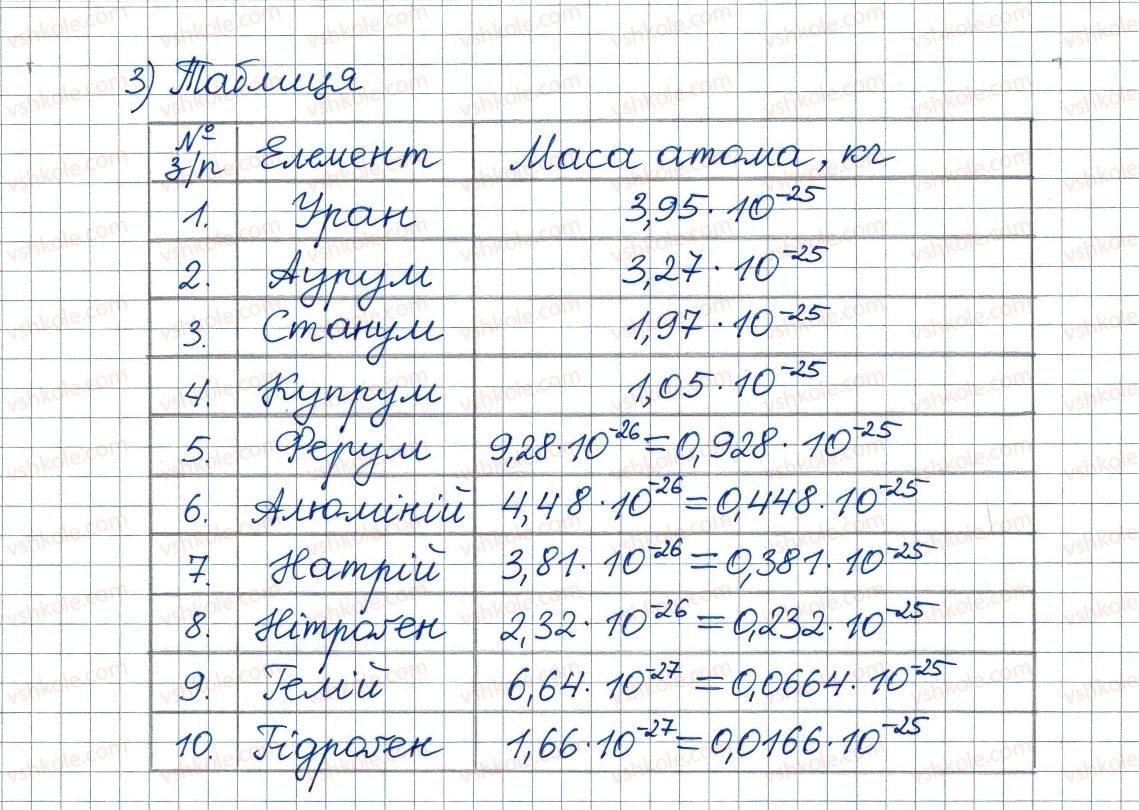 3) Таблиця
№ з/п Елемент Маса атома, кг
1. Уран 3,95·10⁻²⁵
2. Аурум 3,27·10⁻²⁵
3. Станум 1,97·10⁻²⁵
4. Купрум 1,05·10⁻²⁵
5. Ферум 9,28·10⁻²⁶=0,928·10⁻²⁵
6. Алюміній 4,48·10⁻²⁶=0,448·10⁻²⁵
7. Натрій 3,81·10⁻²⁶=0,381·10⁻²⁵
8. Нітроген 2,32·10⁻²⁶=0,232·10⁻²⁵
9. Гелій 6,64·10⁻²⁷=0,0664·10⁻²⁵
10. Гідроген 1,66·10⁻²⁷=0,0166·10⁻²⁵
vshkole.com